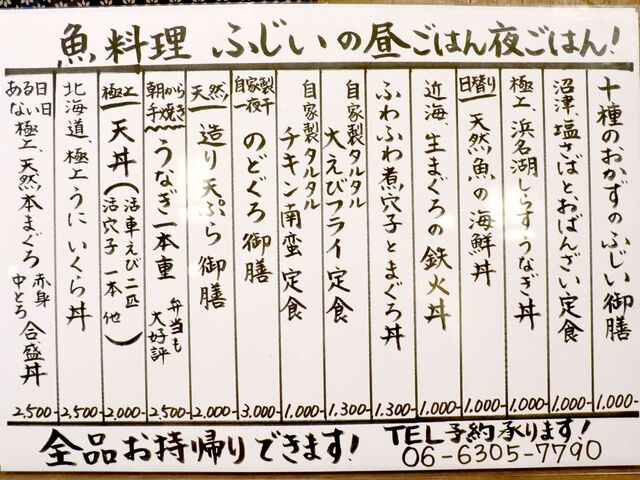 魚料理 ふじいの昼ごはん夜ごはん!
十種のおかずのふじい御膳 1,000-
沼津、塩さばとおばんざい定食 1,000-
極上、浜名湖しらすうなぎ丼 1,000-
日替り 天然魚の海鮮丼 1,000-
近海 生まぐろの鉄火丼 1,000-
ふわふわ煮穴子とまぐろ丼 1,300-
自家製タルタル 大えびフライ定食 1,300-
自家製タルタル チキン南蛮定食 1,000-
自家製一夜干 のどぐろ御膳 3,000-
天然 造り天ぷら御膳 2,000-
朝から手焼き うなぎ一本重 弁当も大好評 2,500-
極上 天丼(活車えび二匹 活穴子一本 他) 2,000-
北海道、極上 うにいくら丼 2,500-
あるない日日 極上、天然本まぐろ 赤身 中とろ 合盛丼 2,500-
全品お持帰りできます!
TEL予約承ります!
06-6305-7790